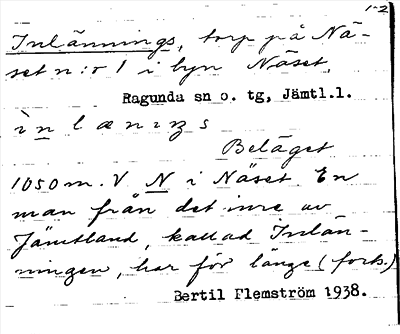 1-2
Inlännings, torp på Nä-
set n:o 1 i byn Näset,
Ragunda sn o. tg, Jämtl.l.
ìnlæniŋs
Beläget
1050 m. V N i Näset. En
man från det inre av
Jämtland, kallad Inlän-
ningen, har för länge (forts.)
Bertil Flemström 1938.